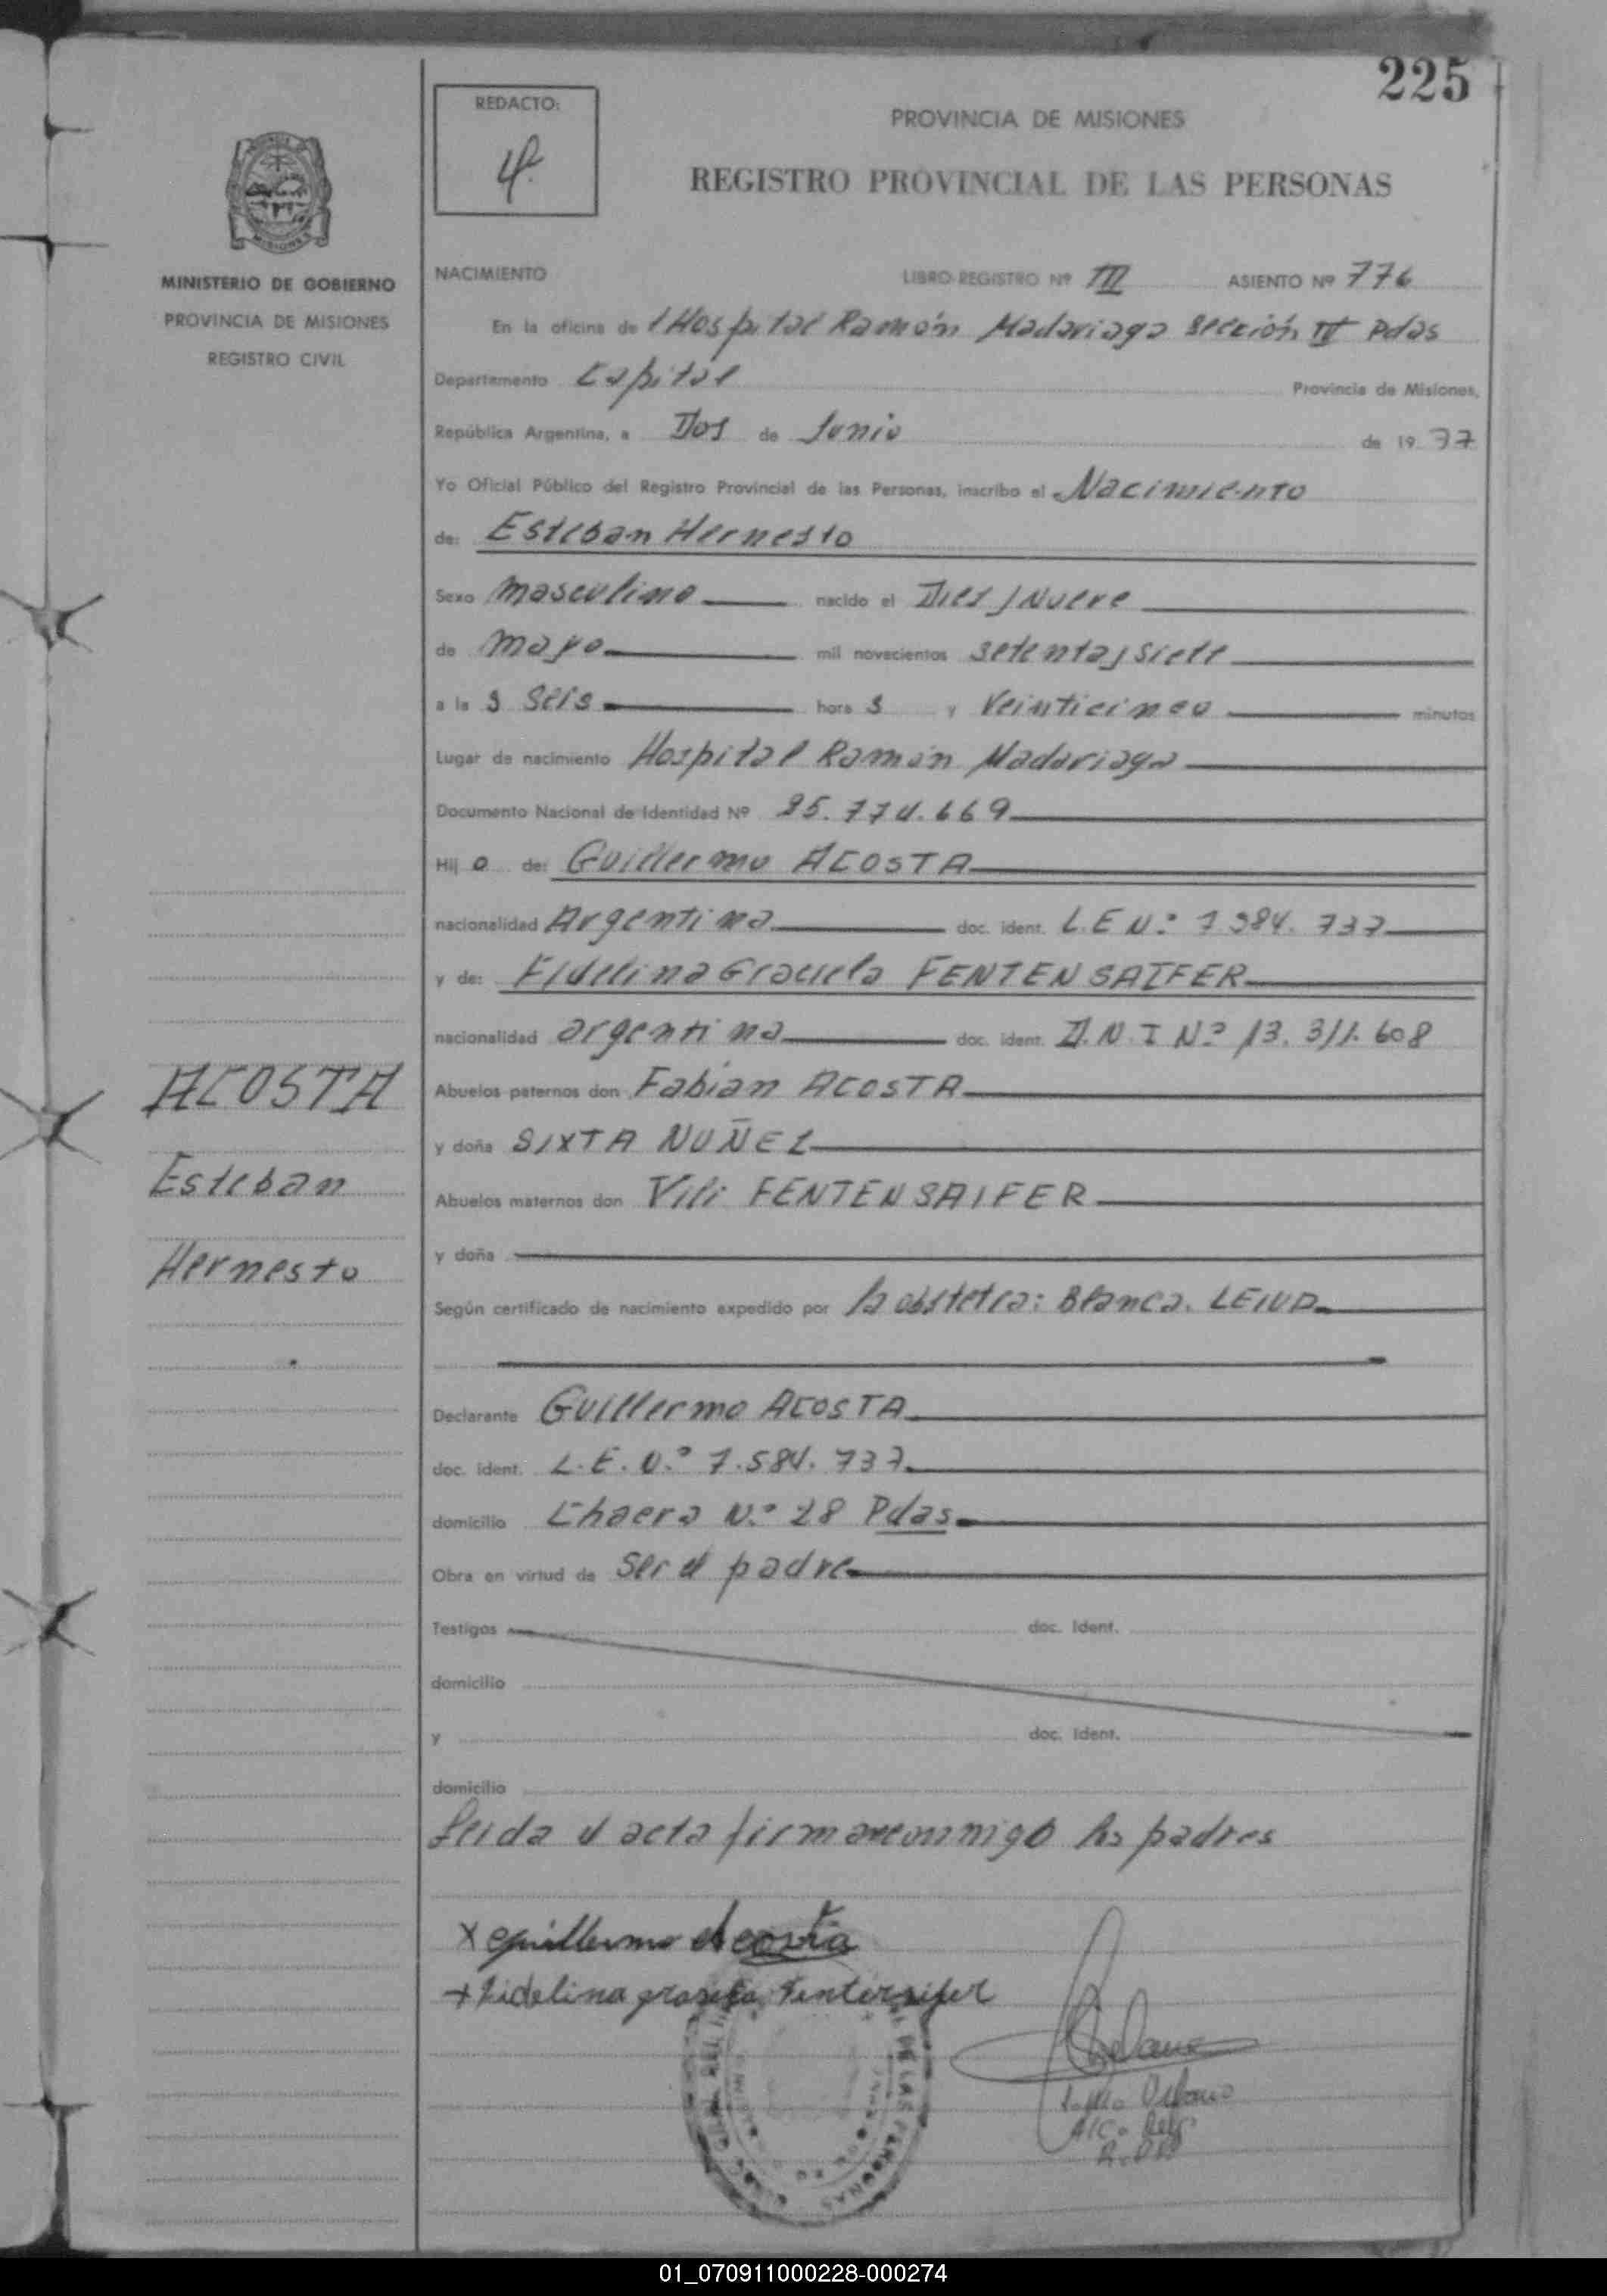 225
REDACTO:
PROVINCIA DE MISIONES
REGISTRO PROVINCIAL DE LAS PERSONAS
MINISTERIO DE GOBIERNO
PROVINCIA DE MISIONES
REGISTRO CIVIL
NACIMIENTO LIBRO-REGISTRO Nº III ASIENTO Nº 776
En la oficina de l Hospital Ramón Madariaga Sección Pdas
Departamento Capital Provincia de Misiones,
República Argentina, a Dos de Junio de 19 77
Yo Oficial Público del Registro Provincial de las Personas, inscribo el Nacimiento
de: Esteban Hernesto
Sexo masculino nacido el Diez y Nueve
de mayo mil novecientos setenta y siete
a la s seis hora s y Veinticinco minutos
Lugar de nacimiento Hospital Ramón Madariaga
Documento Nacional de Identidad Nº 25.774.669
Hij o de: Guillermo ACOSTA
nacionalidad Argentina doc. ident. L.E Nº 7.584.737
y de: Fidelina Graciela FENTENSAIFER
nacionalidad argentina doc. ident. D.N.I Nº 13.311.608
Abuelos paternos don Fabian ACOSTA
y doña SIXTA NUÑEZ
Abuelos maternos don Vili FENTENSAIFER
y doña
Según certificado de nacimiento expedido por la obstetra: Blanca. LEIVA
Declarante Guillermo ACOSTA
doc. ident. L.E.Nº 7.584.737
domicilio Chacra Nº 28 Pdas
Obra en virtud de ser el padre
Testigos doc. Ident.
domicilio
y doc. Ident.
domicilio
ACOSTA
Esteban
Hernesto
Leida el acta firman conmigo los padres
x Guillermo Acosta
+ Fidelina
DE LAS PERSONAS
01_070911000228-000274